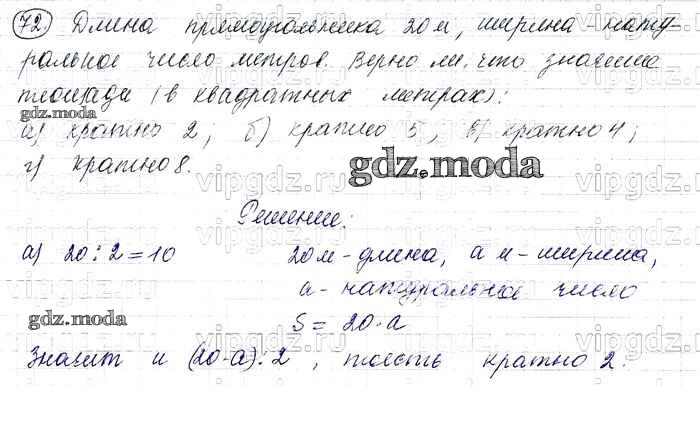 72) Длина прямоугольника 20 м, ширина нату-
ральное число метров. Верно ли, что значение
площади (в квадратных метрах):
gdz.moda
а) кратно 2; б) кратно 5; в) кратно 4;
г) кратно 8.
gdz.moda
Решение:
а) 20 : 2 = 10
20 м - длина, а м - ширина,
а - натуральное число
gdz.moda
S = 20·а
Значит и (20·а) : 2, тоесть кратно 2.